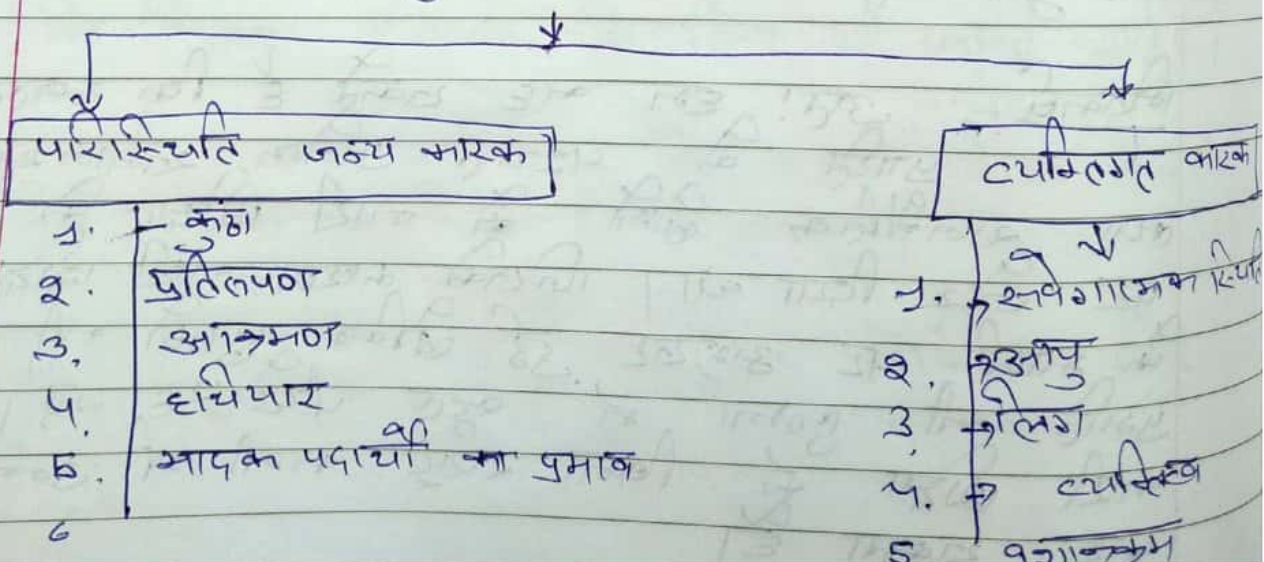 परिस्थिति जन्य कारक
1. कुंठा
2. प्रतिरूपण
3. आक्रमण
4. हथियार
5. मादक पदार्थों का प्रभाव
6
व्यक्तिगत कारक
1. संवेगात्मक स्थिति
2. आयु
3. लिंग
4. व्यक्तित्व
5 वंशानुक्रम